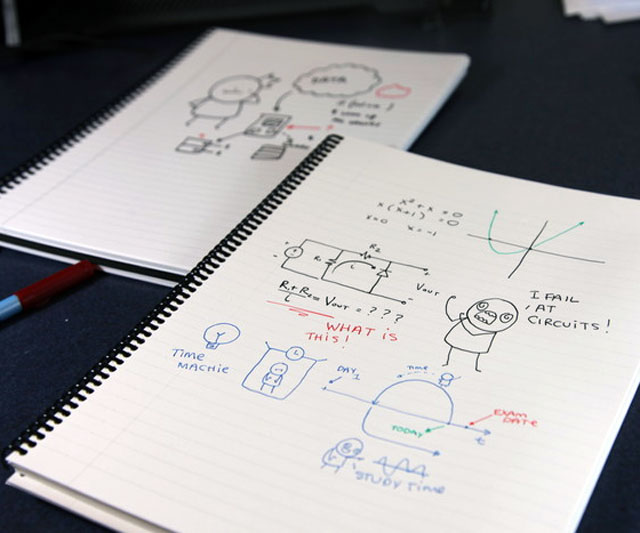 DATA
x² + x = 0
x(x+1) = 0
x=0 x=-1
R₂
R₁
L
Vout
R₁+R₂/L = Vout = ???
WHAT IS
THIS!
I FAIL
AT
CIRCUITS!
TIME
MACHIE
L
DAY 1
TIME
EXAM
DATE
TODAY
t
STUDY TIME